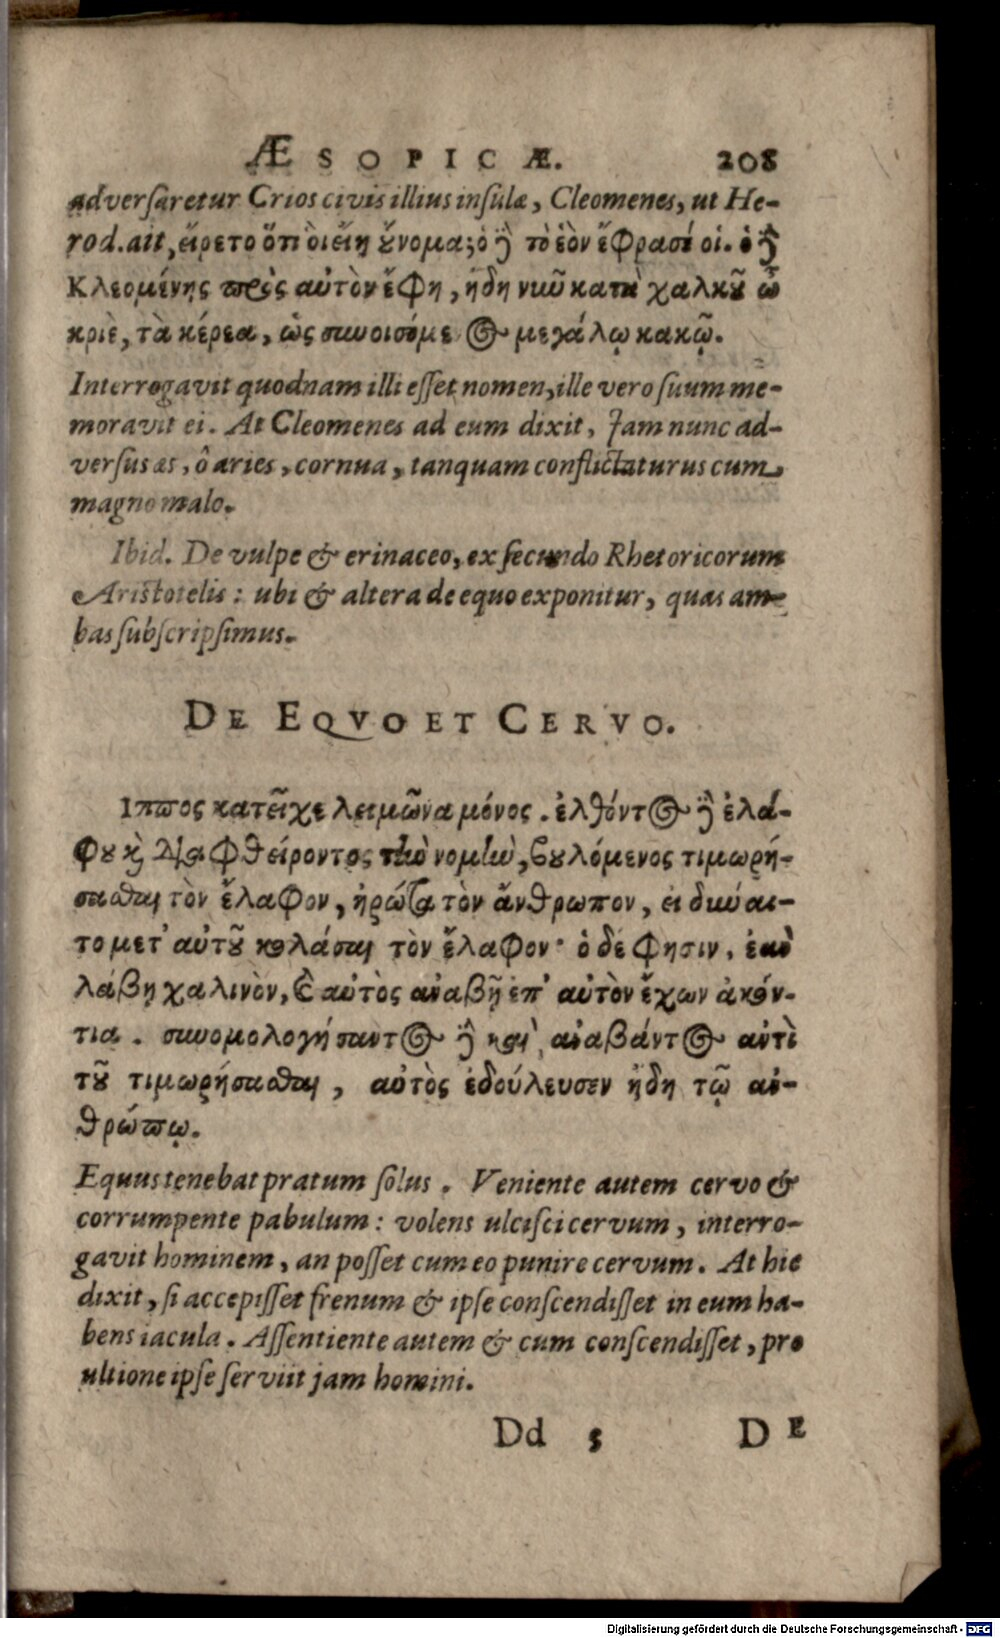 ÆSOPICÆ. 208
adversaretur Crios civis illius insulæ, Cleomenes, ut He-
rod. ait, εἴρετο ὅτι οἱ εἴη ȣ̓́νομα; ὁ δ̀ὲ τὸ ἐὸν ἔφρασέ οἱ. ὁ δὲ
Κλεομένης πρὸς αὐτὸν ἔφη, ἤδη νιῦ κατὰ χαλκȣ͂ ὦ
κριὲ, τὰ κέρεα, ὡς συνοισόμενος μεγάλῳ κακῷ.
Interrogavit quodnam illi esset nomen, ille vero suum me-
moravit ei. At Cleomenes ad eum dixit, Jam nunc ad-
versus æs, ô aries, cornua, tanquam conflictaturus cum
magno malo.
Ibid. De vulpe & erinaceo, ex secundo Rhetoricorum
Aristotelis: ubi & altera de equo exponitur, quas am-
bas subscripsimus.
DE EQVO ET CERVO.
Ιππος κατεῖχε λειμῶνα μόνος. ἐλθόντος δὲ ἐλά-
φου καὶ διαφθείροντος τὴν νομὴν, βουλόμενος τιμωρή-
σασθαι τὸν ἔλαφον, ἠρώτα τὸν ἄνθρωπον, εἰ δύναι-
το μετ' αὐτοῦ κολάσαι τὸν ἔλαφον· ὁ δε φησιν, ἐὰν
λάβῃ χαλινὸν, καὶ αὐτὸς ἀναβῇ ἐπ' αὐτὸν ἔχων ἀκόν-
τια. συνομολογήσαντος δὲ καὶ ἀναβάντος ἀντὶ
τοῦ τιμωρήσασθαι, αὐτὸς ἐδούλευσεν ἤδη τῷ ἀν-
θρώπῳ.
Equus tenebat pratum solus. Veniente autem cervo &
corrumpente pabulum: volens ulcisci cervum, interro-
gavit hominem, an posset cum eo punire cervum. At hic
dixit, si accepisset frenum & ipse conscendisset in eum ha-
bens iacula. Assentiente autem & cum conscendisset, pro
ultione ipse serviit jam homini.
Dd 5 DE
Digitalisierung gefördert durch die Deutsche Forschungsgemeinschaft - DFG